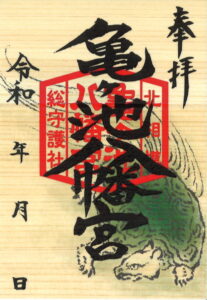 奉拝
亀ヶ池八幡宮
北相
総守護社
令和 年 月 日